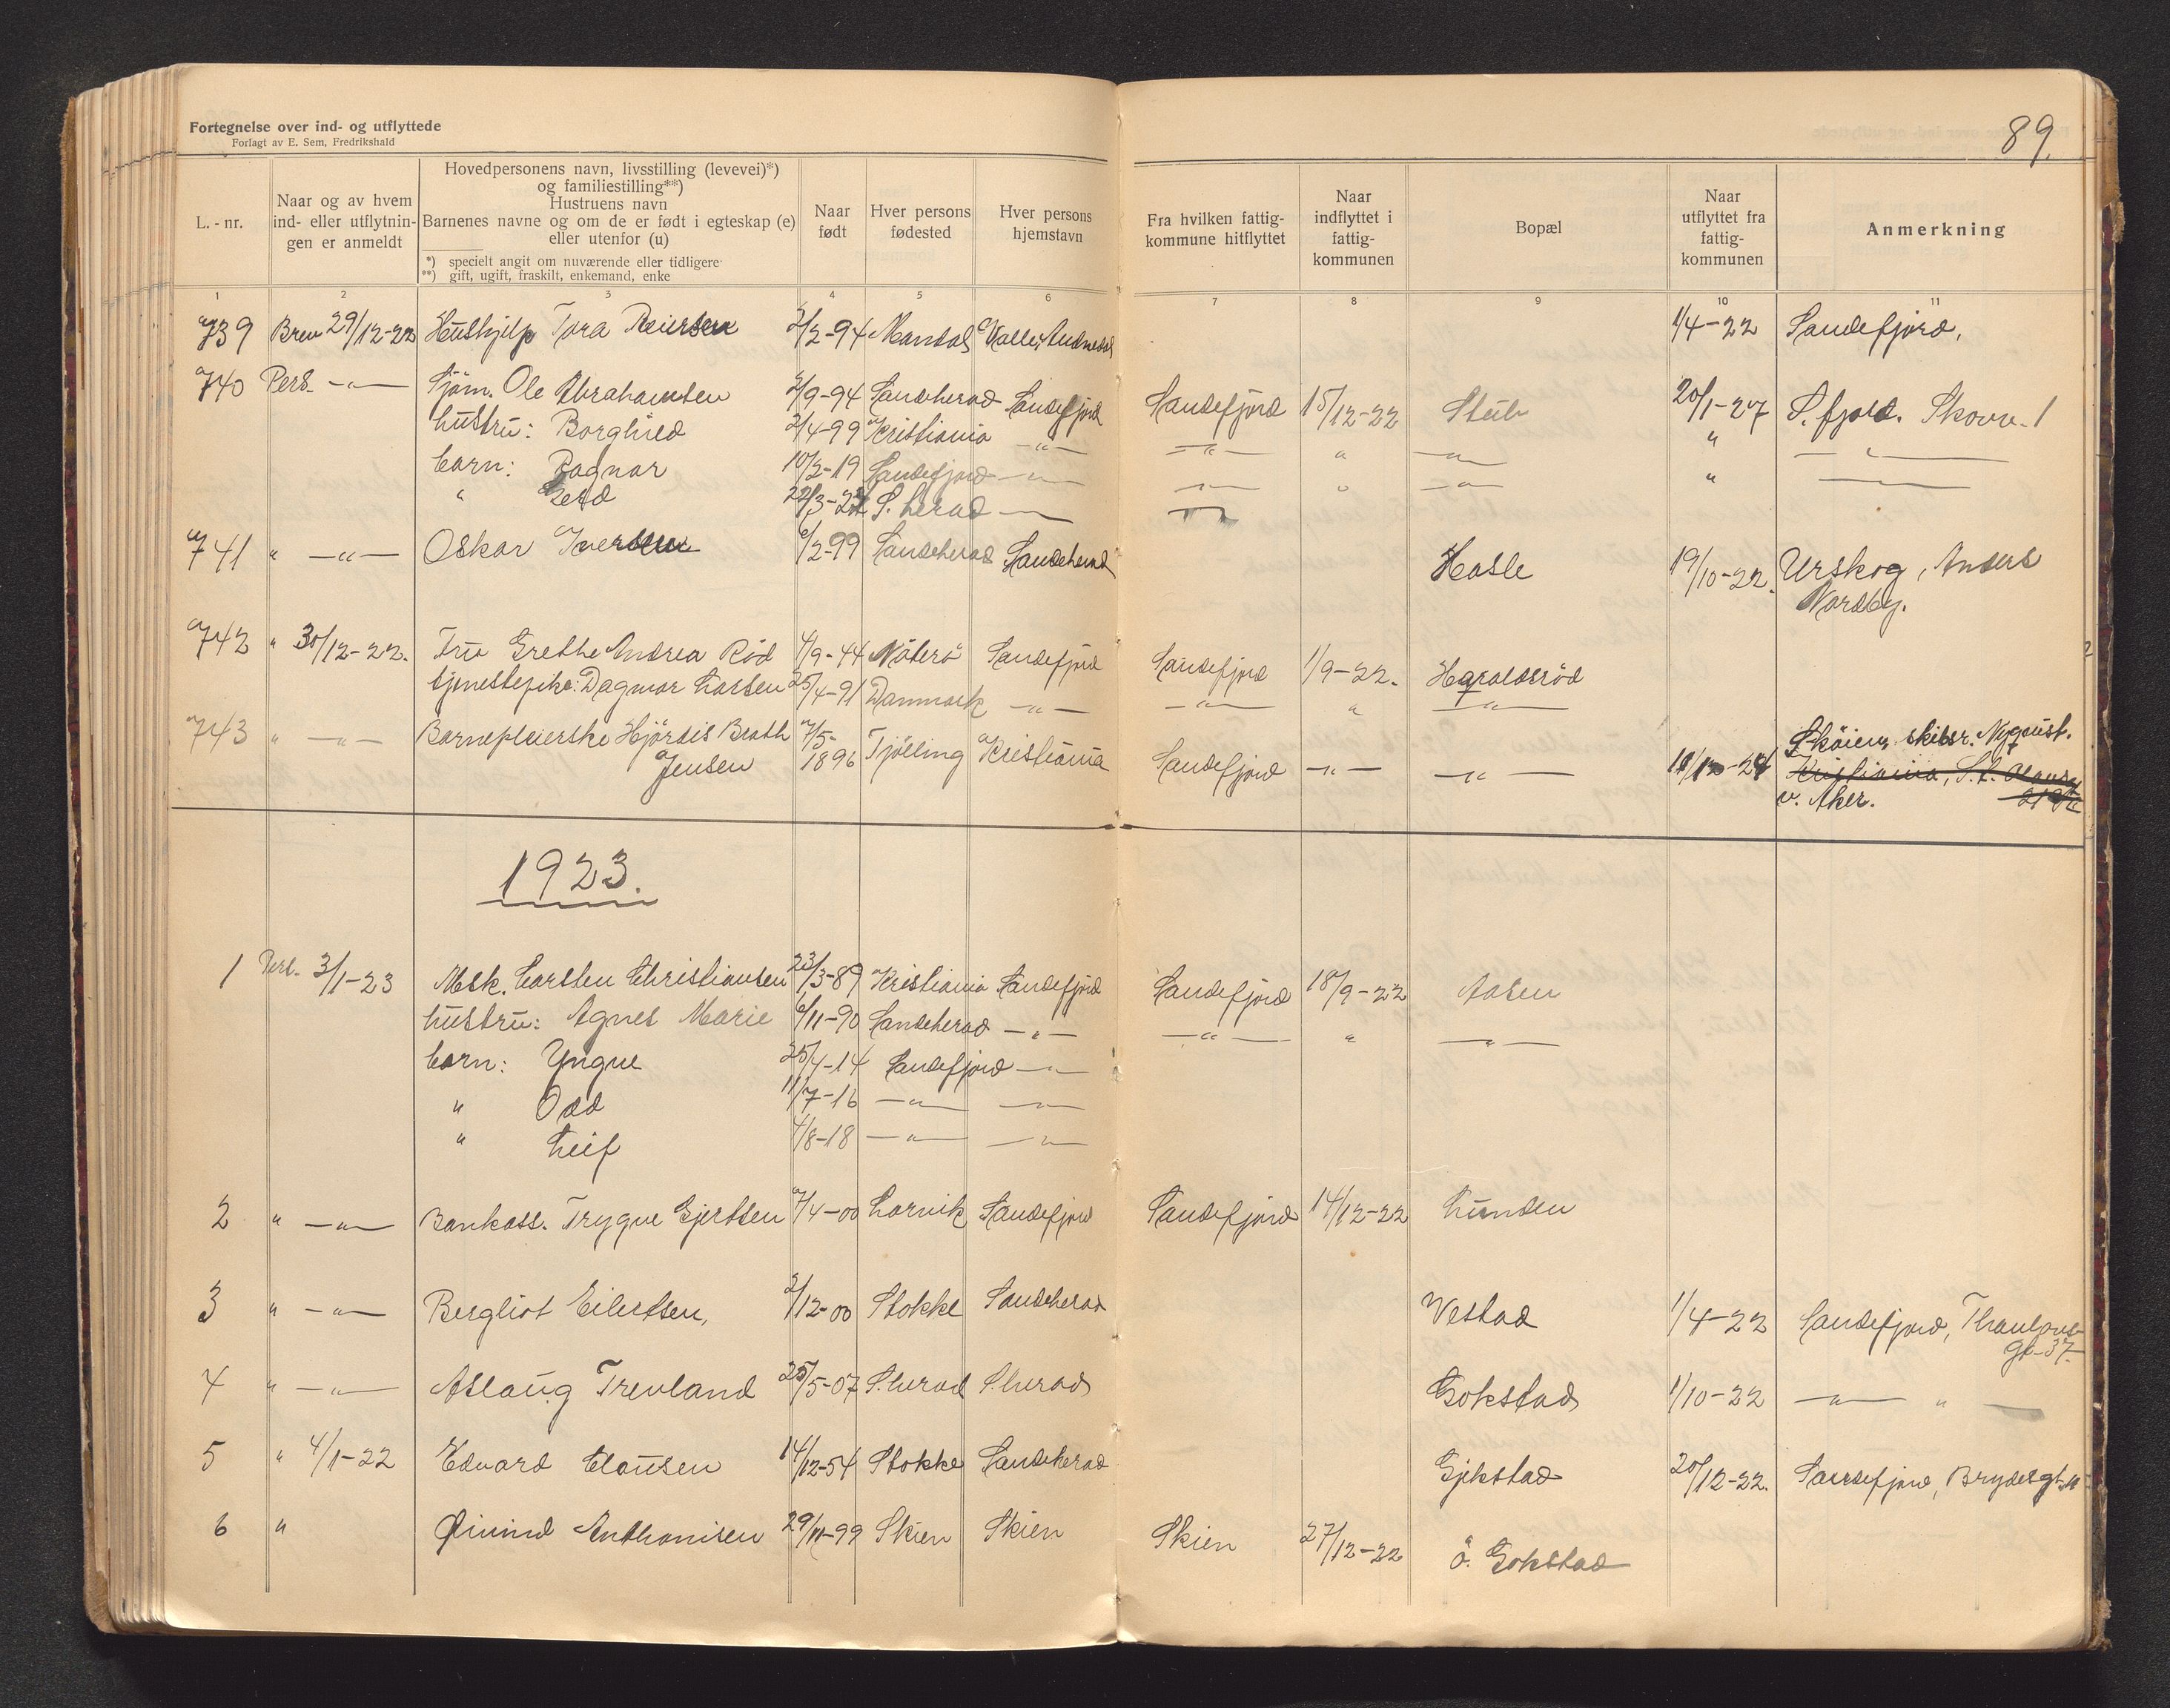 Fortegnelse over ind- og utflyttede
Forlagt av E. Sem, Fredrikshald
89.
L.-nr.
Naar og av hvem ind- eller utflytnin- gen er anmeldt
Hovedpersonens navn, livsstilling (levevei)*)
og familiestilling**)
Hustruens navn
Barnenes navne og om de er født i egteskap (e)
eller utenfor (u)
*) specielt angit om nuværende eller tidligere
**) gift, ugift, fraskilt, enkemand, enke
Naar født
Hver persons fødested
Hver persons hjemstavn
Fra hvilken fattig- kommune hitflyttet
Naar indflyttet i fattig- kommunen
Bopæl
Naar utflyttet fra fattig- kommunen
Anmerkning
1 2 3 4 5 6 7 8 9 10 11
739 Brev 29/12-22 Hushjelp Tora Reiersen 2/2-94 Mandal Valle, 1/4-22 Sandefjord,
740 Pers. —"— Sjöm. Ole Abrahamsen 2/9-94 Sandeherad Sandefjord Sandefjord 15/12-22 Stub 20/1-27 S.fjord. Skovv. 1
hustru: Borghild 2/4-99 Kristiania —"— —"— " —"— " —"—
barn: Ragnar 10/2-19 Sandefjord —"— —"— " —"— " —
" 22/3-22 S.herad —"—
741 " —"— Oskar Iversen 6/2-99 Sandeherad Sandeherad Hasle 19/10-22. Urskog, Anders
Nordby.
742 " 30/12-22. Fru Grethe Andrea Röd 4/9-44 Nöterö Sandefjord Sandefjord 1/9-22. Haraldsröd
tjenestepike: Dagmar Larsen 25/4-91 Danmark —"— —"— " —"—
743 " —"— Barnepleierske Hjördis Brath 7/5- Tjölling Kristiania Sandefjord —"— —"— Sköien, skibsr. Nyquist.
Jensen 1896 Kristiania,
v. Aker.
1923.
1 Pers. 3/1-23 Msk. Carsten Christiansen 23/3-89 Kristiania Sandefjord Sandefjord 18/9-22 Aasen
hustru: Agnes Marie 6/11-90 Sandeherad —"— —"— " —"—
barn: Yngve 25/4-14 Sandefjord —"—
" Odd 11/7-16 —"— —"—
" Leif 4/8-18 —"— —"—
2 " —"— Bankass. Trygve Gjertsen 7/4-00 Larvik Sandefjord Sandefjord 14/12-22 Lunden
3 " —"— Bergliot Eilertsen, 2/12-00 Stokke Sandeherad Vestad 1/4-22 Sandefjord, Thaulows-
gt. 37.
4 " —"— Aslaug Trevland 25/5-07 S.herad S.herad Gokstad 1/10-22 —"— " —
5 " 4/1-22 Edvard Clausen 14/12-54 Stokke Sandeherad Gjekstad 20/12-22. Sandefjord, Brydesgt.
6 " Øivind Anthonisen 29/11-99 Skien Skien Skien 27/12-22 ö. Gokstad